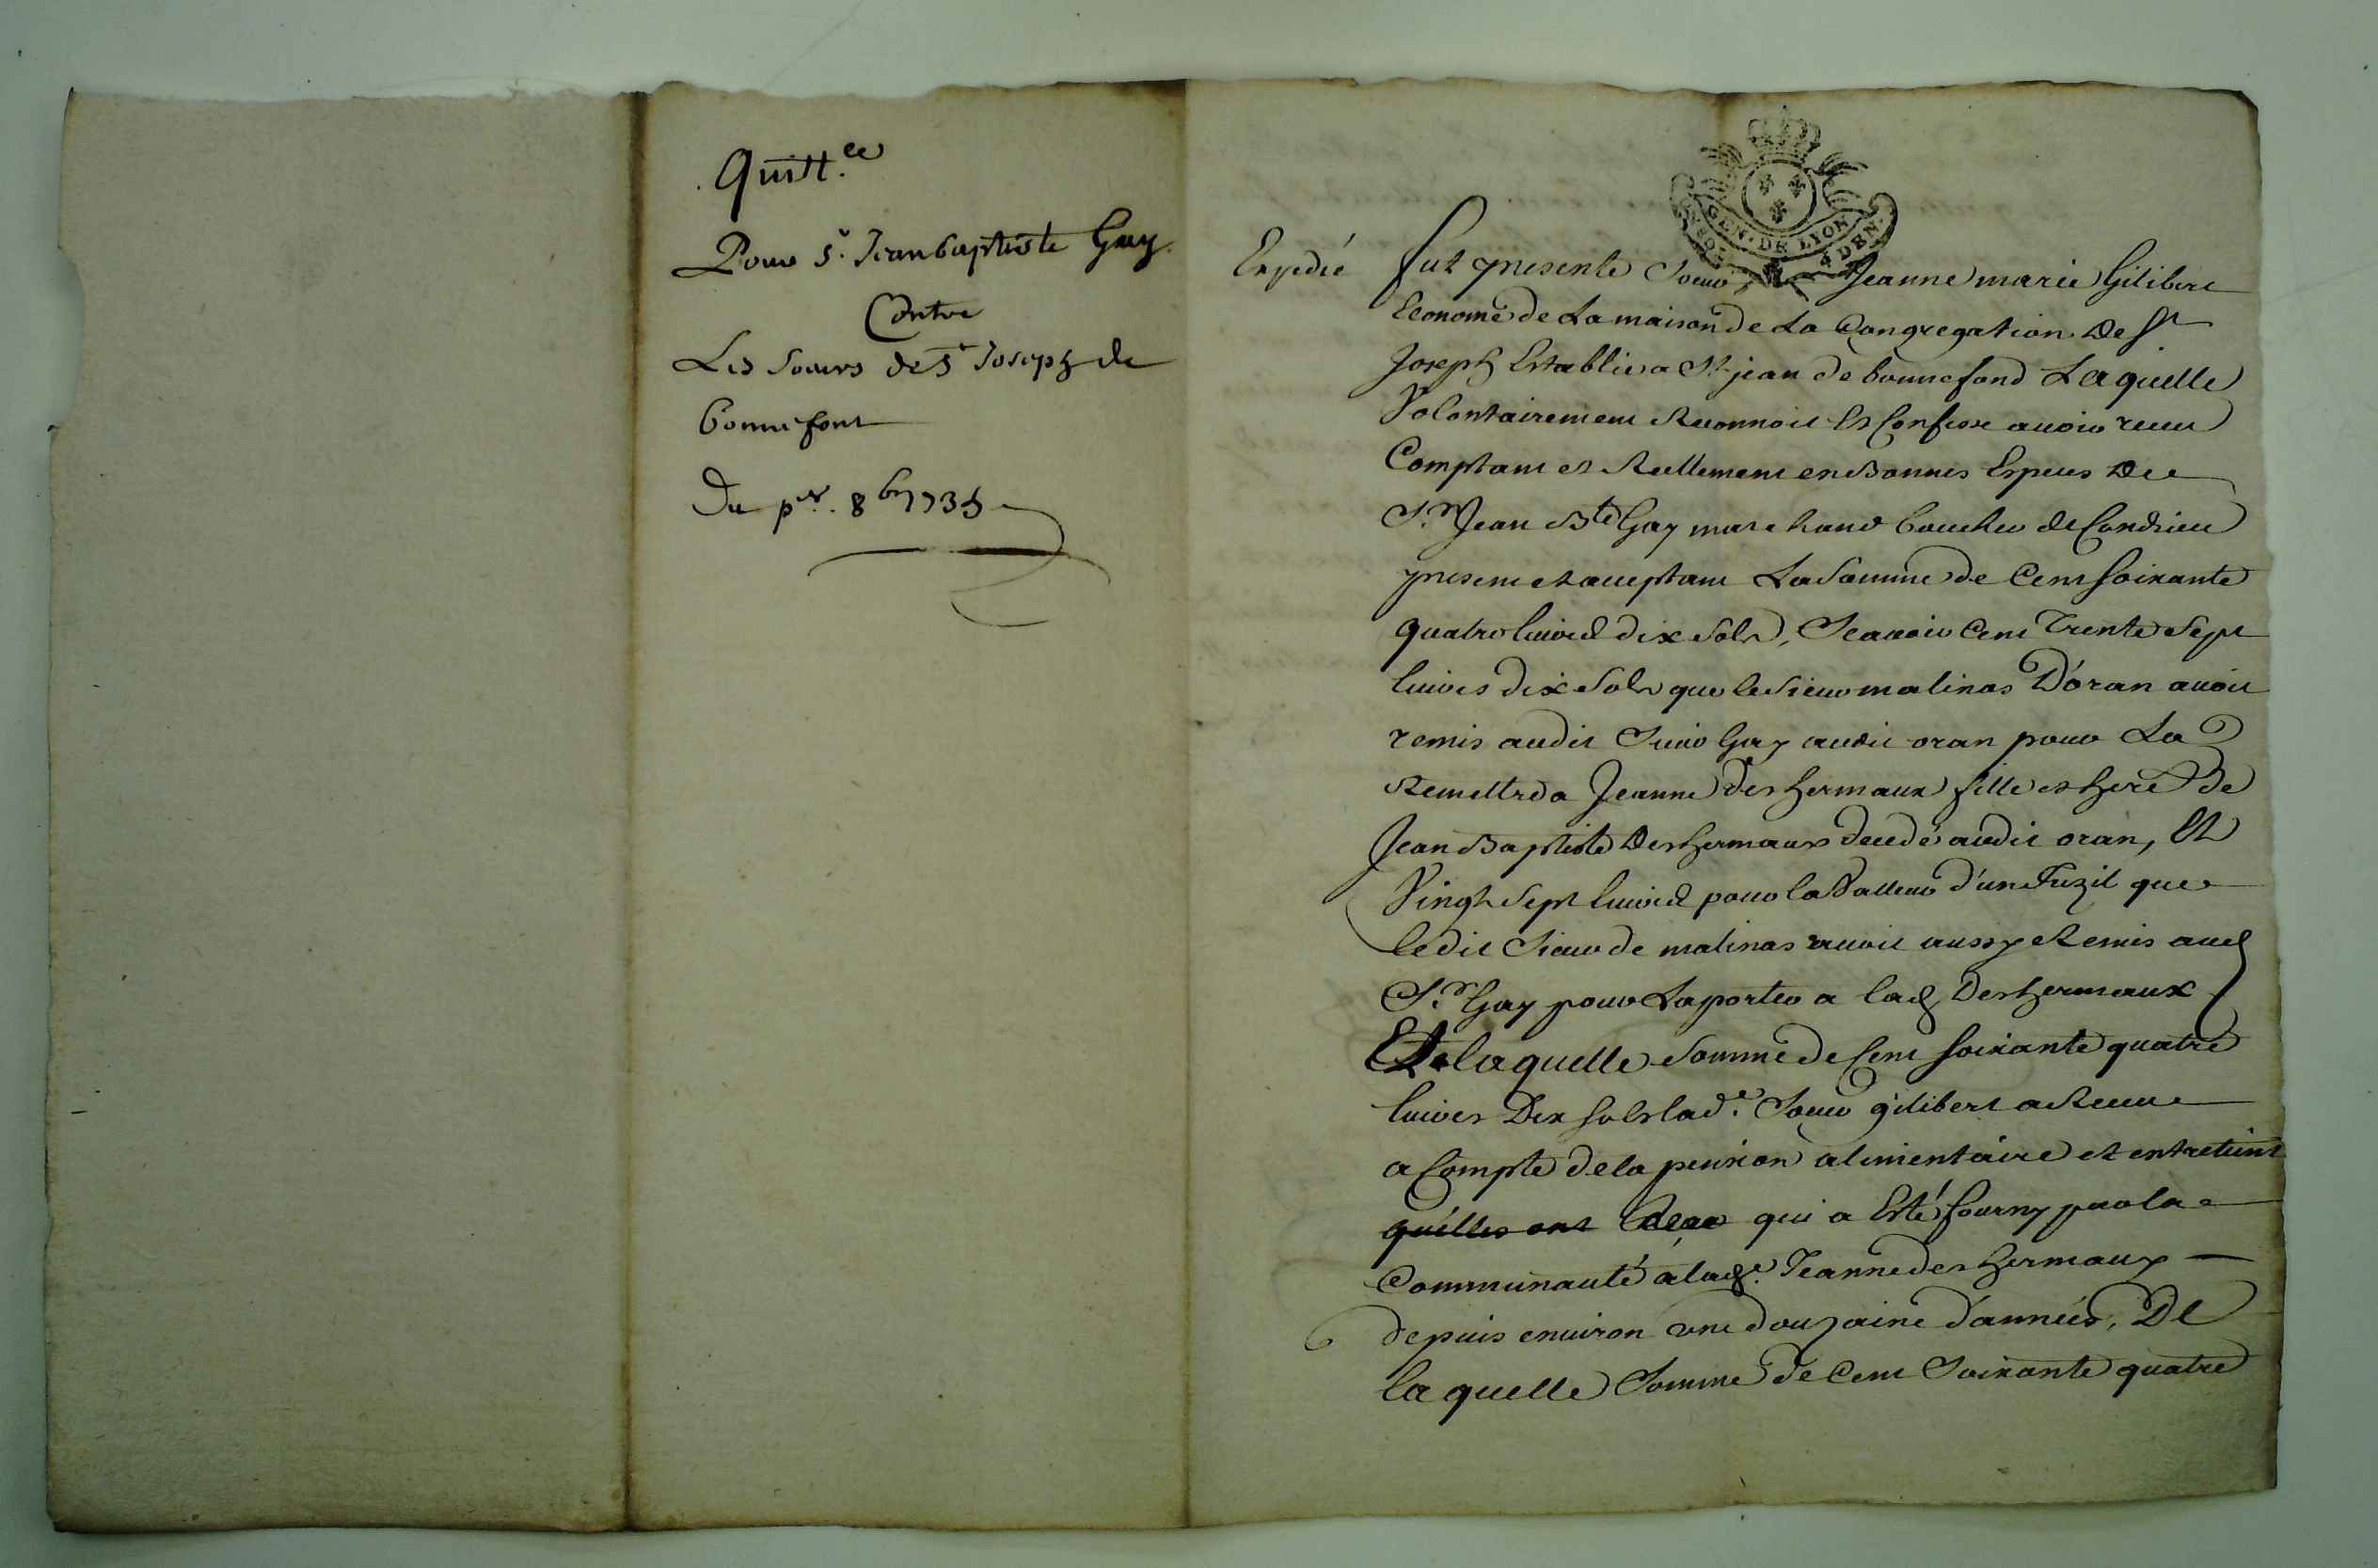 Quitt.ce
Pour Sr. Jean baptiste Gay
Contre
Les Soeurs de St Joseph de
bonnefont
Du per. 8bre 1735
GEN. DE LYON
4 DEN
Expedié
Fut presente Soeur Jeanne marie Gilibert
Econome de La maison de La Congregation De St
Joseph Establie a St jean de bonnefond Laquelle
Volontairement Reconnoit Et Confesse avoir receu
Comptant et Reellement en Bonnes Especes De
Sr. Jean Bte Gay marchand boucher de Condrieu
present et acceptant La Somme de Cent Soixante
quatre livres dix Sols, Scavoir Cent Trente Sept
livres dix Sols que le Sieur malinas D'oran avoit
remis audit Sieur Gay audit oran pour La
Remettre a Jeanne des hermaux fille et here de
Jean Baptiste Des hermaux decedé audit oran, Et
Vingt Sept livres pour la Valleur d'un Fuzil que
ledit Sieur de malinas avoit aussy Remis aud
Sr. Gay pour La porter a lad Des hermaux
laquelle Somme de Cent Soixante quatre
livres Dix Sols lade. Soeur gilibert a Receue
a Compte de la pension alimentaire et entretient
qu'elles ont qui a Esté fourny par la
Communauté a lade. Jeanne des hermaux
depuis environ une douzaine d'années, De
laquelle Somme de Cent Soixante quatre